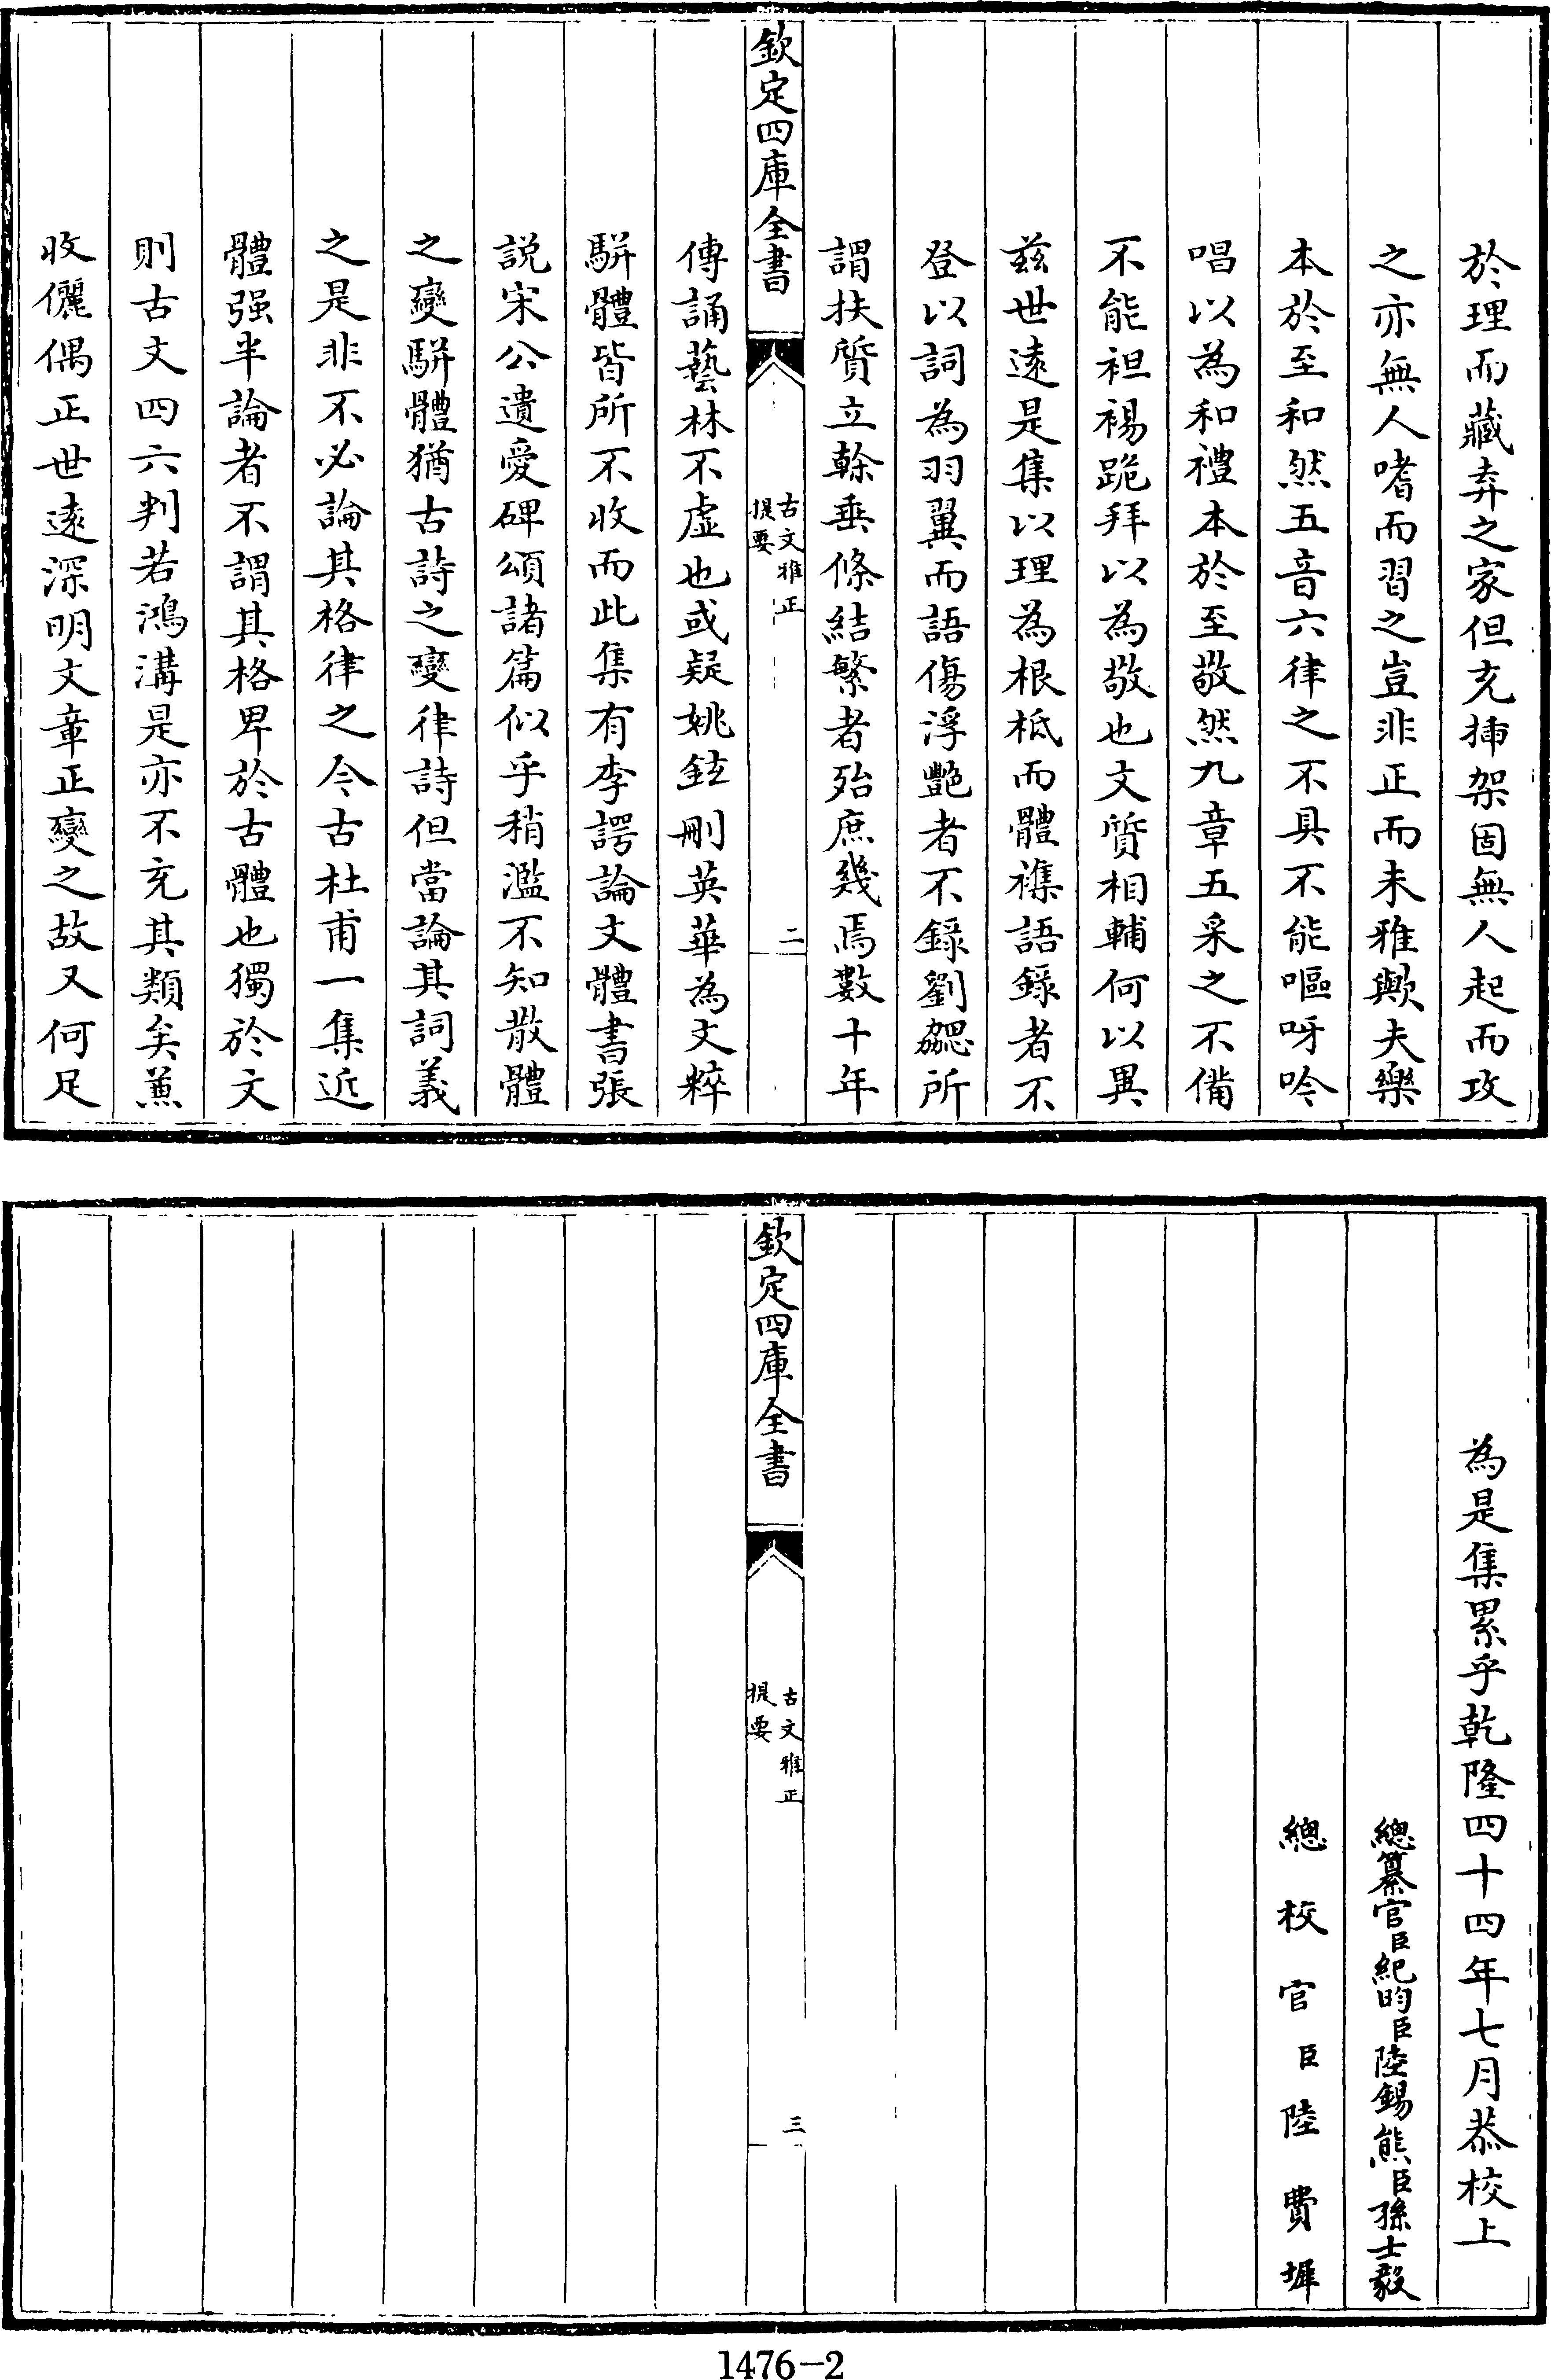 於理而藏弆之家但充揷架固無人起而攻
之亦無人嗜而習之豈非正而未雅歟夫樂
本於至和然五音六律之不具不能嘔呀吟
唱以為和禮本於至敬然九章五采之不備
不能袒裼跪拜以為敬也文質相輔何以異
兹世逺是集以理為根柢而體襍語錄者不
登以詞為羽翼而語傷浮艶者不錄劉勰所
謂扶質立幹垂條結繁者殆庶幾焉數十年
欽定四庫全書
古文雅正
提要
二
傳誦藝林不虛也或疑姚鉉刪英華為文粹
駢體皆所不收而此集有李諤論文體書張
説宋公遺愛碑頌諸篇似乎稍濫不知散體
之變駢體猶古詩之變律詩但當論其詞義
之是非不必論其格律之今古杜甫一集近
體强半論者不謂其格卑於古體也獨於文
則古文四六判若鴻溝是亦不充其類矣蕙
收儷偶正世逺深明文章正變之故又何足
為是集累乎乾隆四十四年七月恭校上
總纂官臣紀昀臣陸錫熊臣孫士毅
總校官臣陸費墀
欽定四庫全書
古文雅正
提要
三
1476-2